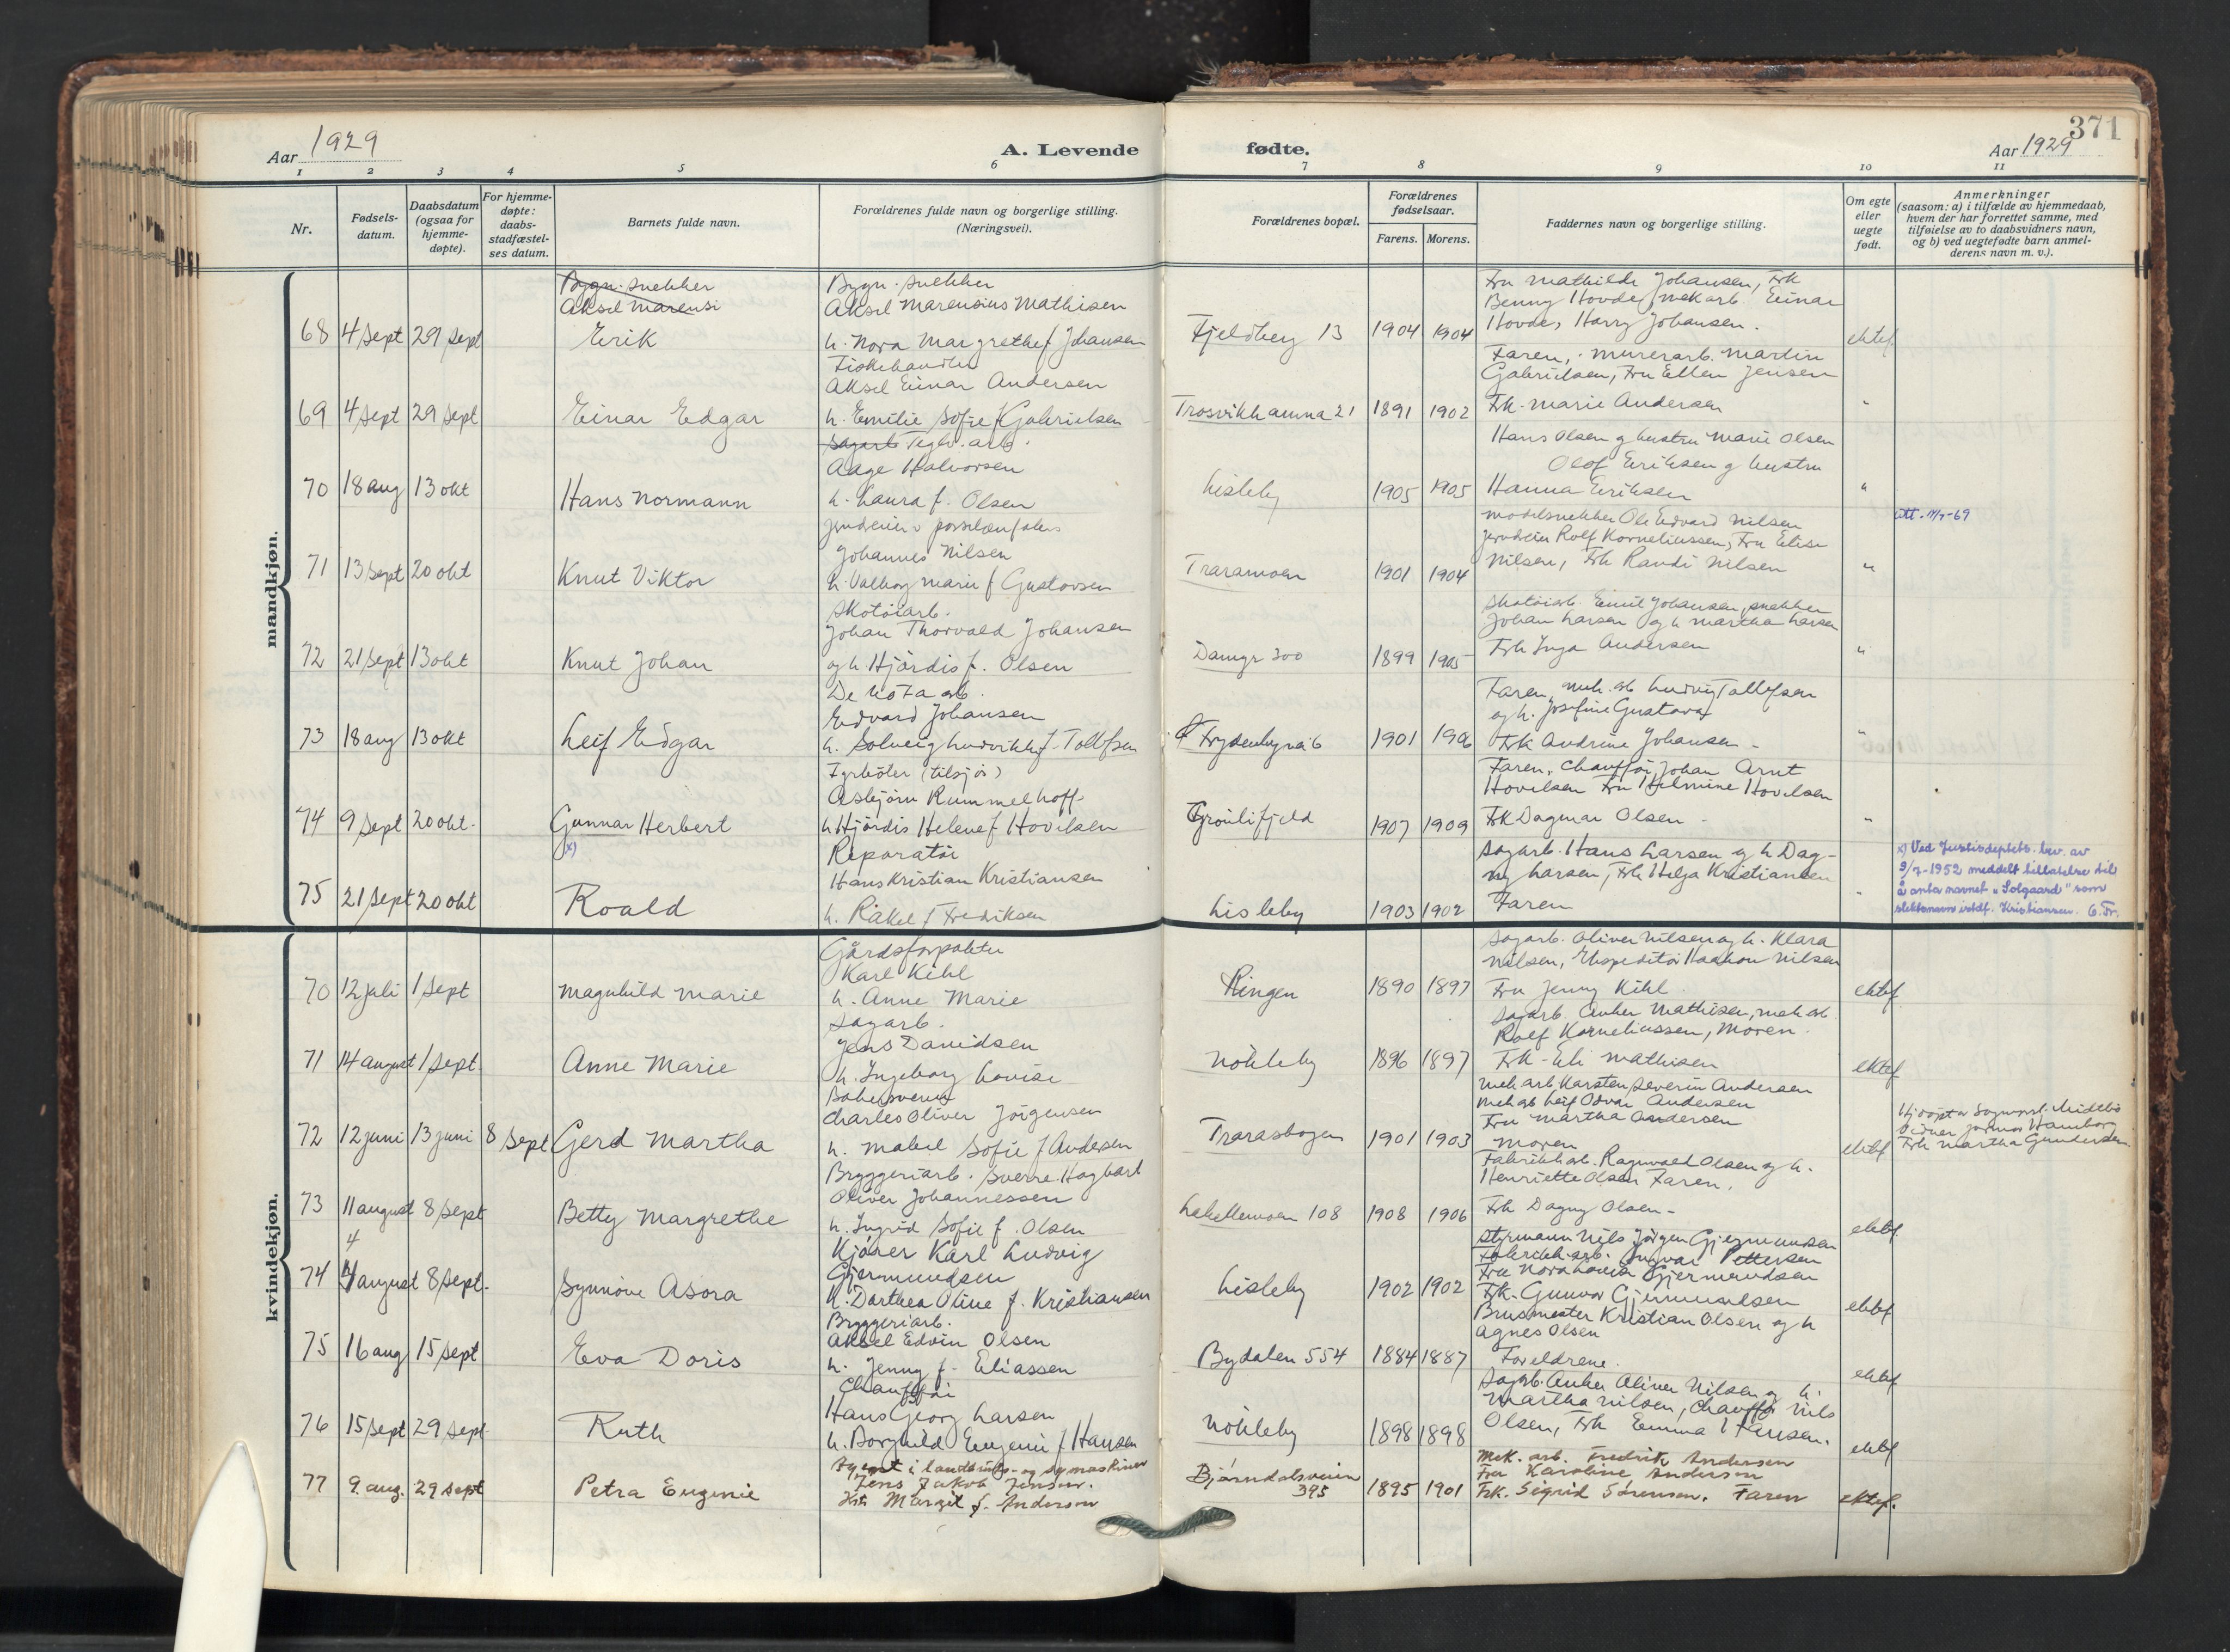 371
Aar 1929
A. Levende fødte.
Aar 1929
1 2 3 4 5 6 7 8 9 10 11
Nr.
Fødsels-
datum.
Daabsdatum
(ogsaa for
hjemme-
døpte).
For hjemme-
døpte:
daabs-
stadfæstel-
ses datum.
Barnets fulde navn.
Forældrenes fulde navn og borgerlige stilling.
(Næringsvei).
Forældrenes bopæl.
Forældrenes
fødselsaar.
Farens. Morens.
Faddernes navn og borgerlige stilling.
Om egte
eller
uegte
født.
Anmerkninger
(saasom: a) i tilfælde av hjemmedaab,
hvem der har forrettet samme, med
tilføielse av to daabsvidners navn,
og b) ved uegtefødte barn anmel-
derens navn m. v.).
mandkjøn.
Bygn. snekker
Aksel Marensi
68 4 Sept 29 Sept
Erik
Bygn. snekker
Aksel Marensius Mathisen
h. Nora Margrethe f Johansen
Fjeldberg 13
1904 1904
Fru Mathilde Johansen, Frk
Benny Hovde, mek arb. Einar
Hovde, Harry Johansen.
ektef
69 4 Sept 29 Sept
Einar Edgar
Fiskehandler
Aksel Einar Andersen
h. Emilie Sofie f Gabrielsen
Trosvikhamna 21
1891 1902
Faren, murerarb. Martin
Gabrielsen, Fru Ellen Jensen
Frk. Marie Andersen
"
70 18 aug 13 okt
Hans Normann
Sagarb Teglv. arb.
Aage Halvorsen
h. Laura f. Olsen
Lisleby
1905 1905
Hans Olsen og hustru Marie Olsen
Olof Eriksen og hustru
Hanna Eriksen
"
71 13 Sept 20 okt
Knut Viktor
Johannes Nilsen
h. Valborg Marie f Gustavsen
Traramoen
1901 1904
modelsnekker Ole Edvard Nilsen
jerndreier Rolf Korneliussen, Fru Elise
Nilsen, Frk Randi Nilsen
"
72 21 Sept 13 okt
Knut Johan
Skotøiarb.
Johan Thorvald Johansen
og h. Hjördis f. Olsen
Damgr 300
1899 1905
Skotøiarb. Emil Johansen, snekker
Johan Larsen og h Martha Larsen
Frk Inga Andersen
"
73 18 aug 13 okt
Leif Edgar
De No Fa arb.
Edvard Johansen
h. Solveig Ludvikke f. Tollefsen
1901 1906
Faren, mek. arb Ludvig Tollefsen
og h. Josefine Gustava
Frk Andrine Johansen
"
74 9 Sept 20 okt.
Gunnar Herbert
x)
Fyrbøter (tilsjøs)
Asbjørn Rummelhoff
h Hjördis Helene f Hovelsen
Grönlifjeld
1907 1909
Faren. Chauffør Johan Arnt
Hovelsen Fru Hilmine Hovelsen
Frk Dagmar Olsen
"
75 21 Sept 20 okt
Roald
Reparatør
Hans Kristian Kristiansen
h. Rakel f Fredriksen
Lisleby
1903 1902
Sagarb. Hans Larsen og h Dag-
ny Larsen, Frk Helga Kristiansen
Faren
"
x) Ved Justisdeptets. bev. av
9/7-1952 meddelt tillatelse til
å anta navnet "Solgaard" som
slektsnavn istdf. Kristiansen. G. Fr.
kvindekjøn.
70 12 juli 1 Sept
Magnhild Marie
Gårdsforpakter
Karl Kihl
h. Anne Marie
Ringen
1890 1897
Sagarb. Oliver Nilsen og h. Klara
Nilsen, Ekspeditør Haakon Nilsen
Fru Jenny Kihl
ektef
71 14 august 1 Sept.
Anne Marie
Sagarb.
Jens Davidsen
h. Ingeborg Lovise
Nökleby
1896 1897
Sagarb. Anker Mathisen, mek arb.
Rolf Korneliussen, Moren.
Frk. Eli Mathisen
ektef
72 12 juni 13 juni 8 Sept
Gerd Martha
Bakersvend
Charles Oliver Jörgensen
h. Mabel Sofie f Andersen
Trarasbogen
1901 1903
Mek arb Karsten Severin Andersen
Mek arb Leif Odvar Andersen
Fru Martha Andersen
Moren
ektef
Frk Martha Gundersen
73 11 august 8 Sept
Betty Margrethe
Bryggeriarb. Sverre Hagbart
Oliver Johannessen
h. Ingrid Sofie f. Olsen
Lahellemoen 108
1908 1906
Fabrikkarb. Ragnvald Olsen og h.
Henriette Olsen Faren.
Frk Dagny Olsen
ektef.
4
74 4 august 8 Sept.
Synnöve Asora
Kjörer Karl Ludvig
Gjermundsen
h. Dorthea Oline f. Kristiansen
Lisleby
1902 1902
Styrmann Nils Jörgen Gjermundsen
Fabrikk. arb. Ingvar Pettersen
Fru Nora Lovise Gjermundsen
Frk. Gunvor Gjermundsen
ektef
75 16 aug 15 Sept
Eva Doris
Bryggeriarb.
Aksel Edvin Olsen
h. Jenny f. Eliassen
Bydalen 554
1884 1887
Brusmester Kristian Olsen og h
Agnes Olsen
Foreldrene.
ektef
76 15 Sept 29 Sept
Ruth
Chauffør
Hans Georg Larsen
h. Borghild Eugenie f Hansen
Nökleby
1898 1898
Sagarb. Anker Oliver Nilsen og h.
Martha Nilsen, Chauffør Nils
Olsen, Frk Emma Hansen.
ektef
77 9. aug. 29 Sept
Petra Eugenie
Agent i landbruks- og symaskiner
Jens Jakob Jensen.
Hst. Margit f. Andersen
Bjørndalsveien
395
1895 1901
Mek. arb. Fredrik Andersen
Fru Karoline Andersen
Frk. Sigrid Sørensen. Faren
ektef.